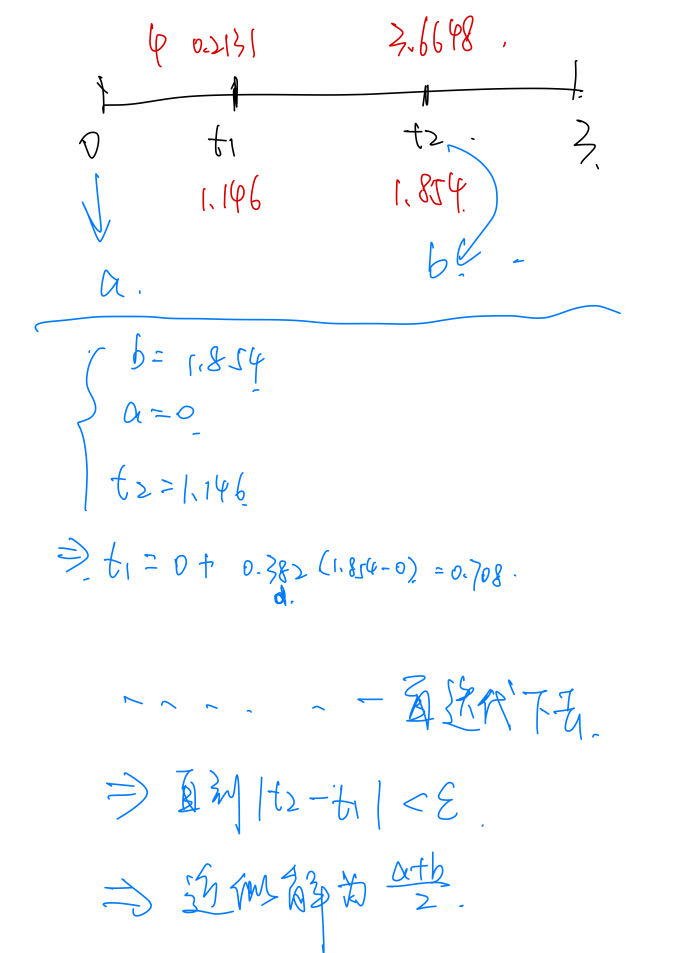 φ 0.2131 3.6648.
0 t₁ t₂. 3.
1.146 1.854
a. b.
b = 1.854
a = 0
t₂ = 1.146
⇒ t₁ = 0 + 0.382 (1.854-0) = 0.708.
d.
...... 一直迭代下去.
⇒ 直到 |t₂ - t₁| < ε.
⇒ 近似解为 (a+b)/2.